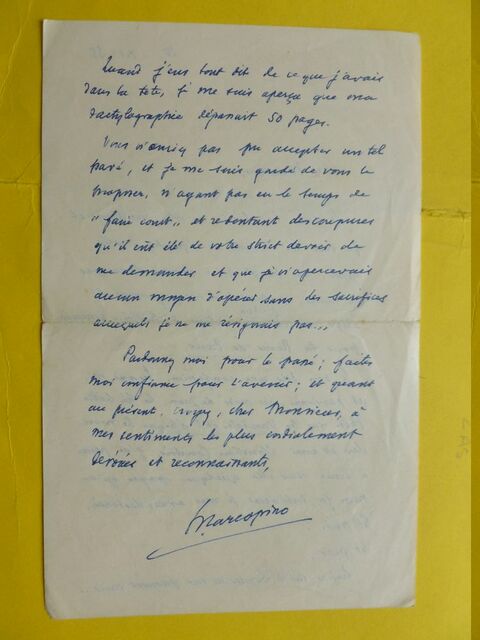 Quand j'eus tout dit de ce que j'avais
dans la tête, je me suis aperçu que ma
dactylographie dépassait 50 pages.
Vous n'auriez pas pu accepter un tel
pavé, et je me suis gardé de vous le
proposer, n'ayant pas eu le temps de
"faire court", et redoutant des coupures
qu'il eût été de votre strict devoir de
me demander et que je n'apercevais
aucun moyen d'opérer sans des sacrifices
auxquels je ne me résignais pas...
Pardonnez moi pour le passé ; faites
moi confiance pour l'avenir ; et quant
au présent, croyez, cher Monsieur, à
mes sentiments les plus cordialement
dévoués et reconnaissants,